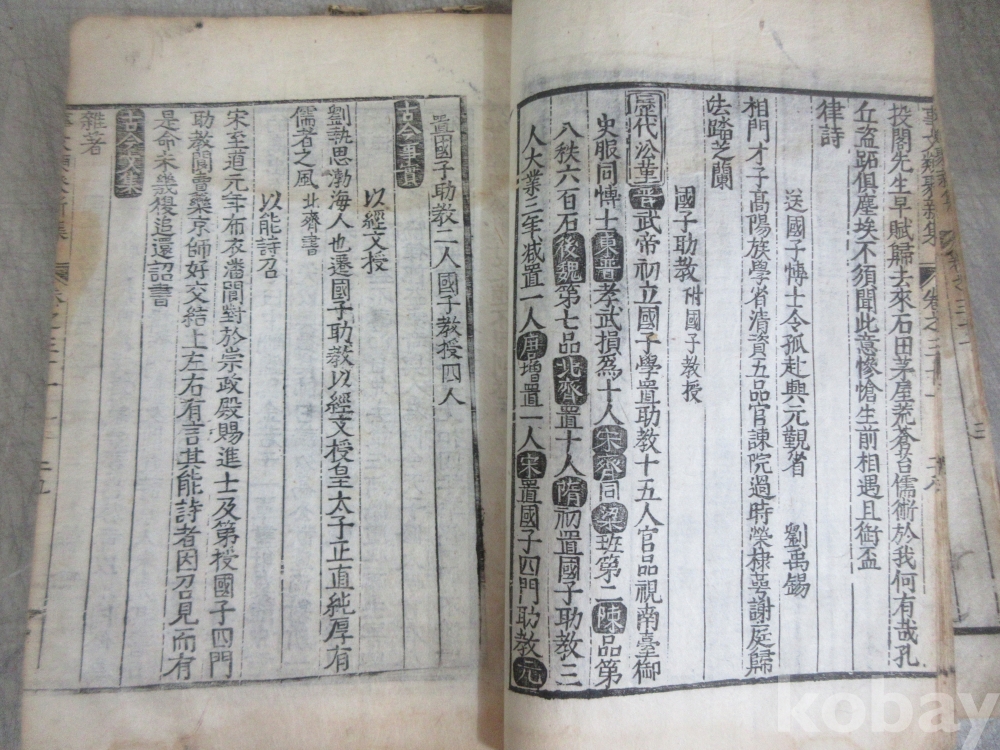 投閣先生早賦歸去來石田茅屋荒蒼苔儒術於我何有哉孔
丘盗跖俱塵埃不須聞此意慘愴生前相遇且銜盃
律詩
送國子博士令狐赴興元觀省　劉禹錫
相門才子高陽族學省清資五品官諫院過時榮棣萼謝庭歸
去踏芝蘭
國子助教 附國子教授
歷代沿革 晉武帝初立國子學置助教十五人官品視南臺御
史服同博士東晉孝武損爲十人宋齊同梁班第二陳品第
八秩六百石後魏第七品北齊置十人隋初置國子助教三
人大業三年减置一人唐增置一人宋置國子四門助教元
置國子助教二人國子教授四人
古今事實
以經文授
劉執思渤海人也遷國子助教以經文授皇太子正直純厚有
儒者之風 北齊書
以能詩召
宋至道元年布衣潘閬對於崇政殿賜進士及第授國子四門
助教閬賣藥京師好交結上左右有言其能詩者因召見而有
是命未幾復追還詔書
古今文集
雜著
kobay